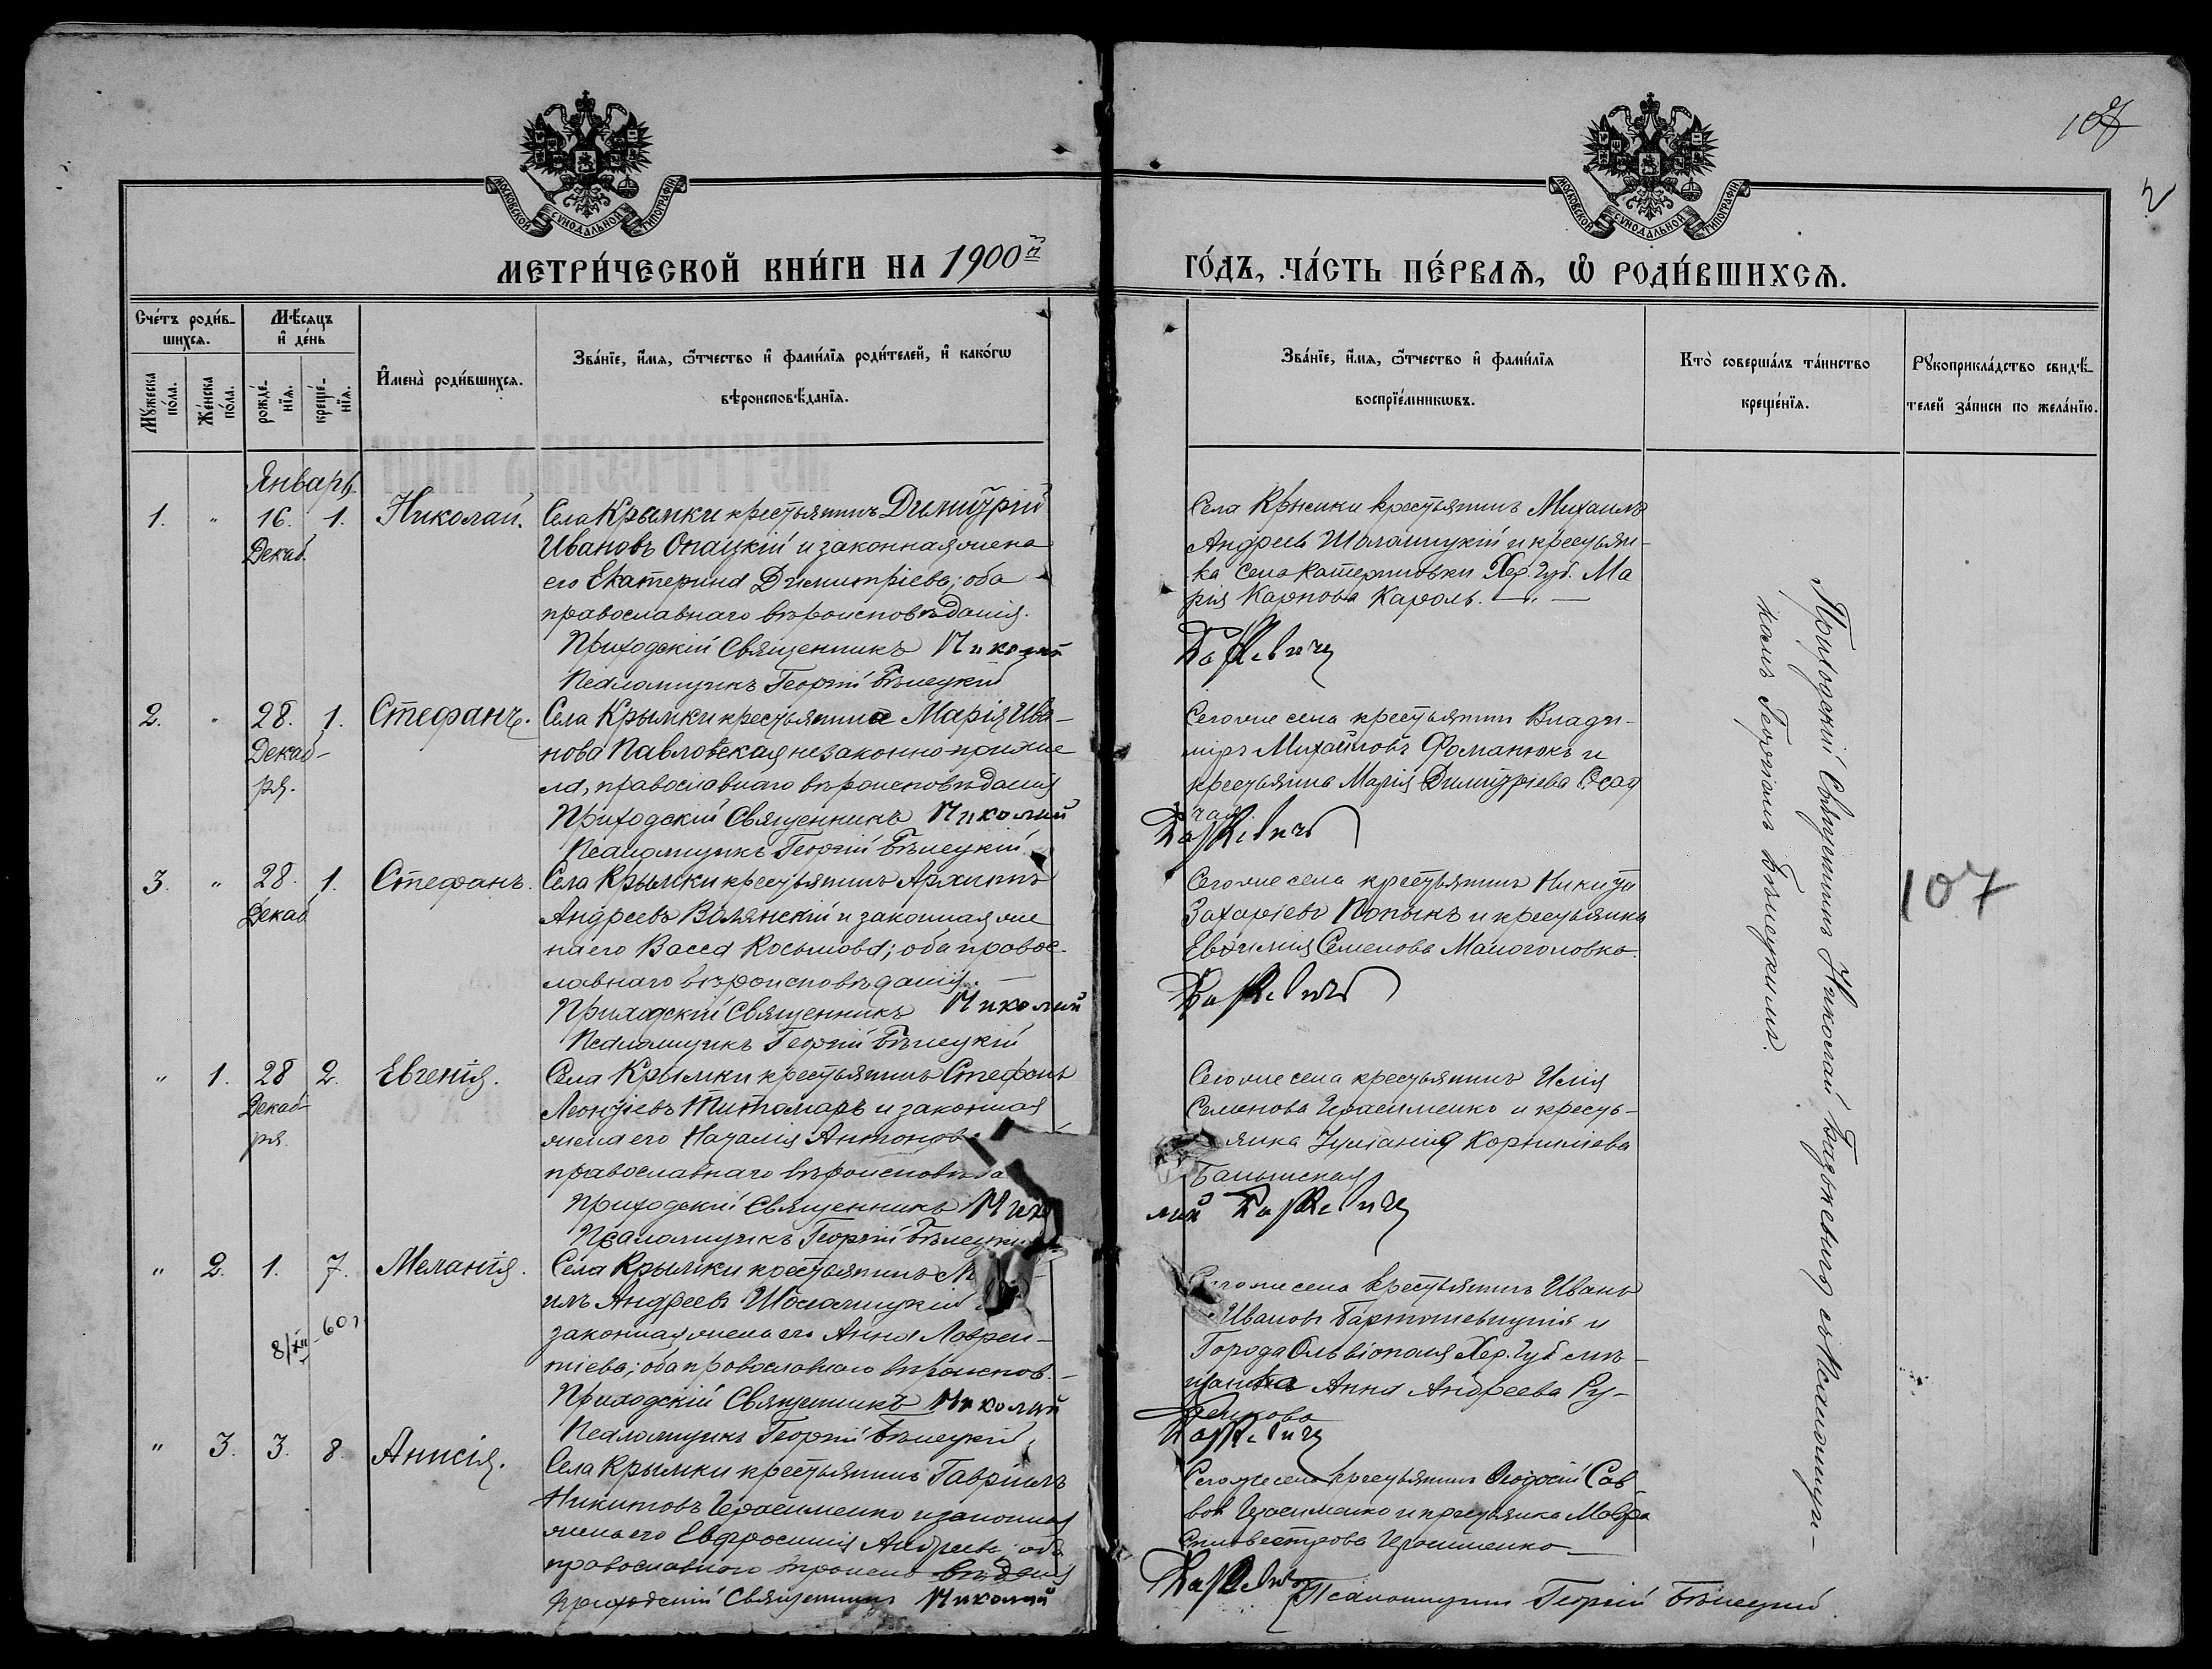 107
2
МОСКОВСКОЙ СѴНОДАЛЬНОЙ ТИПОГРАФІИ
МОСКОВСКОЙ СѴНОДАЛЬНОЙ ТИПОГРАФІИ
МЕТРИ́ЧЕСКОЙ КНИ́ГИ НА 1900й
ГО́ДЪ, ЧА́СТЬ ПЕ́РВАѦ, Ѡ РОДИ́ВШИХСѦ.
Сче́тъ роди́в-
шихсѧ.
Мꙋ́жеска по́ла.
Же́нска по́ла.
Мѣ́сѧцъ
и҆ де́нь
рожде́-
нїѧ.
креще́-
нїѧ.
И҆мена̀ роди́вшихсѧ.
Зва́нїе, и҆́мѧ, ѻ҆́тчество и҆ фами́лїѧ роди́телей, и҆ како́гѡ
вѣроисповѣ́данїѧ.
Зва́нїе, и҆́мѧ, ѻ҆́тчество и҆ фами́лїѧ
воспрїе́мникѡвъ.
Кто̀ соверша́лъ та́инство
креще́нїѧ.
Рꙋкоприкла́дство свидѣ́-
телей за́писи по жела́нїю.
Январь
1. " 16. 1. Николай.
Декаб.
Села Крымки крестьянинъ Димитрій
Ивановъ Опацкій и законная жена
его Екатерина Димитріева; оба
православнаго вѣроисповѣданія.
Приходскій Священникъ Николай
Псаломщикъ Георгій Бѣлецкій
Села Крымки крестьянинъ Михаилъ
Андреевъ Шоломицкій и крестьян-
ка села Катериновки Хер. губ. Ма
рія Карпова Кароль. — " —
Базкевичъ
2. " 28. 1. Стефанъ.
Декаб-
ря.
Села Крымки крестьянина Марія Ива-
нова Павловская незаконно-прижи
ла, православнаго вѣроисповѣданія
Приходскій Священникъ Николай
Псаломщикъ Георгій Бѣлецкій
Сего же села крестьянин Влади-
міръ Михайловъ Романюкъ и
крестьянка Марія Димитріева Осад
чая
Базкевичъ
3. " 28. 1. Стефанъ.
Декаб
Села Крымки крестьянинъ Архиппъ
Андреевъ Волянскій и законная же
на его Васса Косьмова; оба правос-
лавнаго вѣроисповѣданія. —
Приходскій Священникъ Николай
Псаломщикъ Георгій Бѣлецкій
Сего же села крестьянинъ Никита
Захаріевъ Попыкъ и крестьянка
Евфимія Семенова Малоголовка.
Базкевичъ
107
" 1. 28 2. Евгенія.
Декаб-
ря.
Села Крымки крестьянинъ Стефанъ
Леонтіевъ Титомаръ и законная
жена его Наталія Антонов
православнаго вѣроисповѣда
Приходскій Священникъ Ник
Псаломщикъ Георгій Бѣлецкі
Сего же села крестьянинъ Илія
Семенова Герасименко и кресть-
янка Іуліанія Корниліева
Балынская
лай Базкевичъ
" 2. 1. 7. Меланія.
8/XII-60 г.
Села Крымки крестьянинъ М
илъ Андреевъ Шоломицкій
законная жена его Анна Лаврен-
тіева; оба православнаго вѣроиспов. —
Приходскій Священникъ Николай
Псаломщикъ Георгій Бѣлецкій
Сего же села крестьянинъ Иванъ
Ивановъ Бартошевицкій и
Города Ольвіополя Хер. губ мѣ-
щанка Анна Андреева Ру-
денкова
Базкевичъ
" 3. 3. 8. Анисія.
Села Крымки крестьянинъ Гавріилъ
Никитовъ Герасименко и законная
жена его Евфросинія Андреева оба
православнаго вѣроиспо вѣданія
Приходскій Священникъ Николай
Сего же села крестьянин Ѳеодосій Сав
вовъ Герасименко и крестьянка Мавра
Сильвестрова Герасименко —
Базкевичъ
Псаломщикъ Георгій Бѣлецкій
Приходскій Священникъ Николай Базкевичъ съ Псаломщи-
комъ Георгіемъ Бѣлецкимъ.